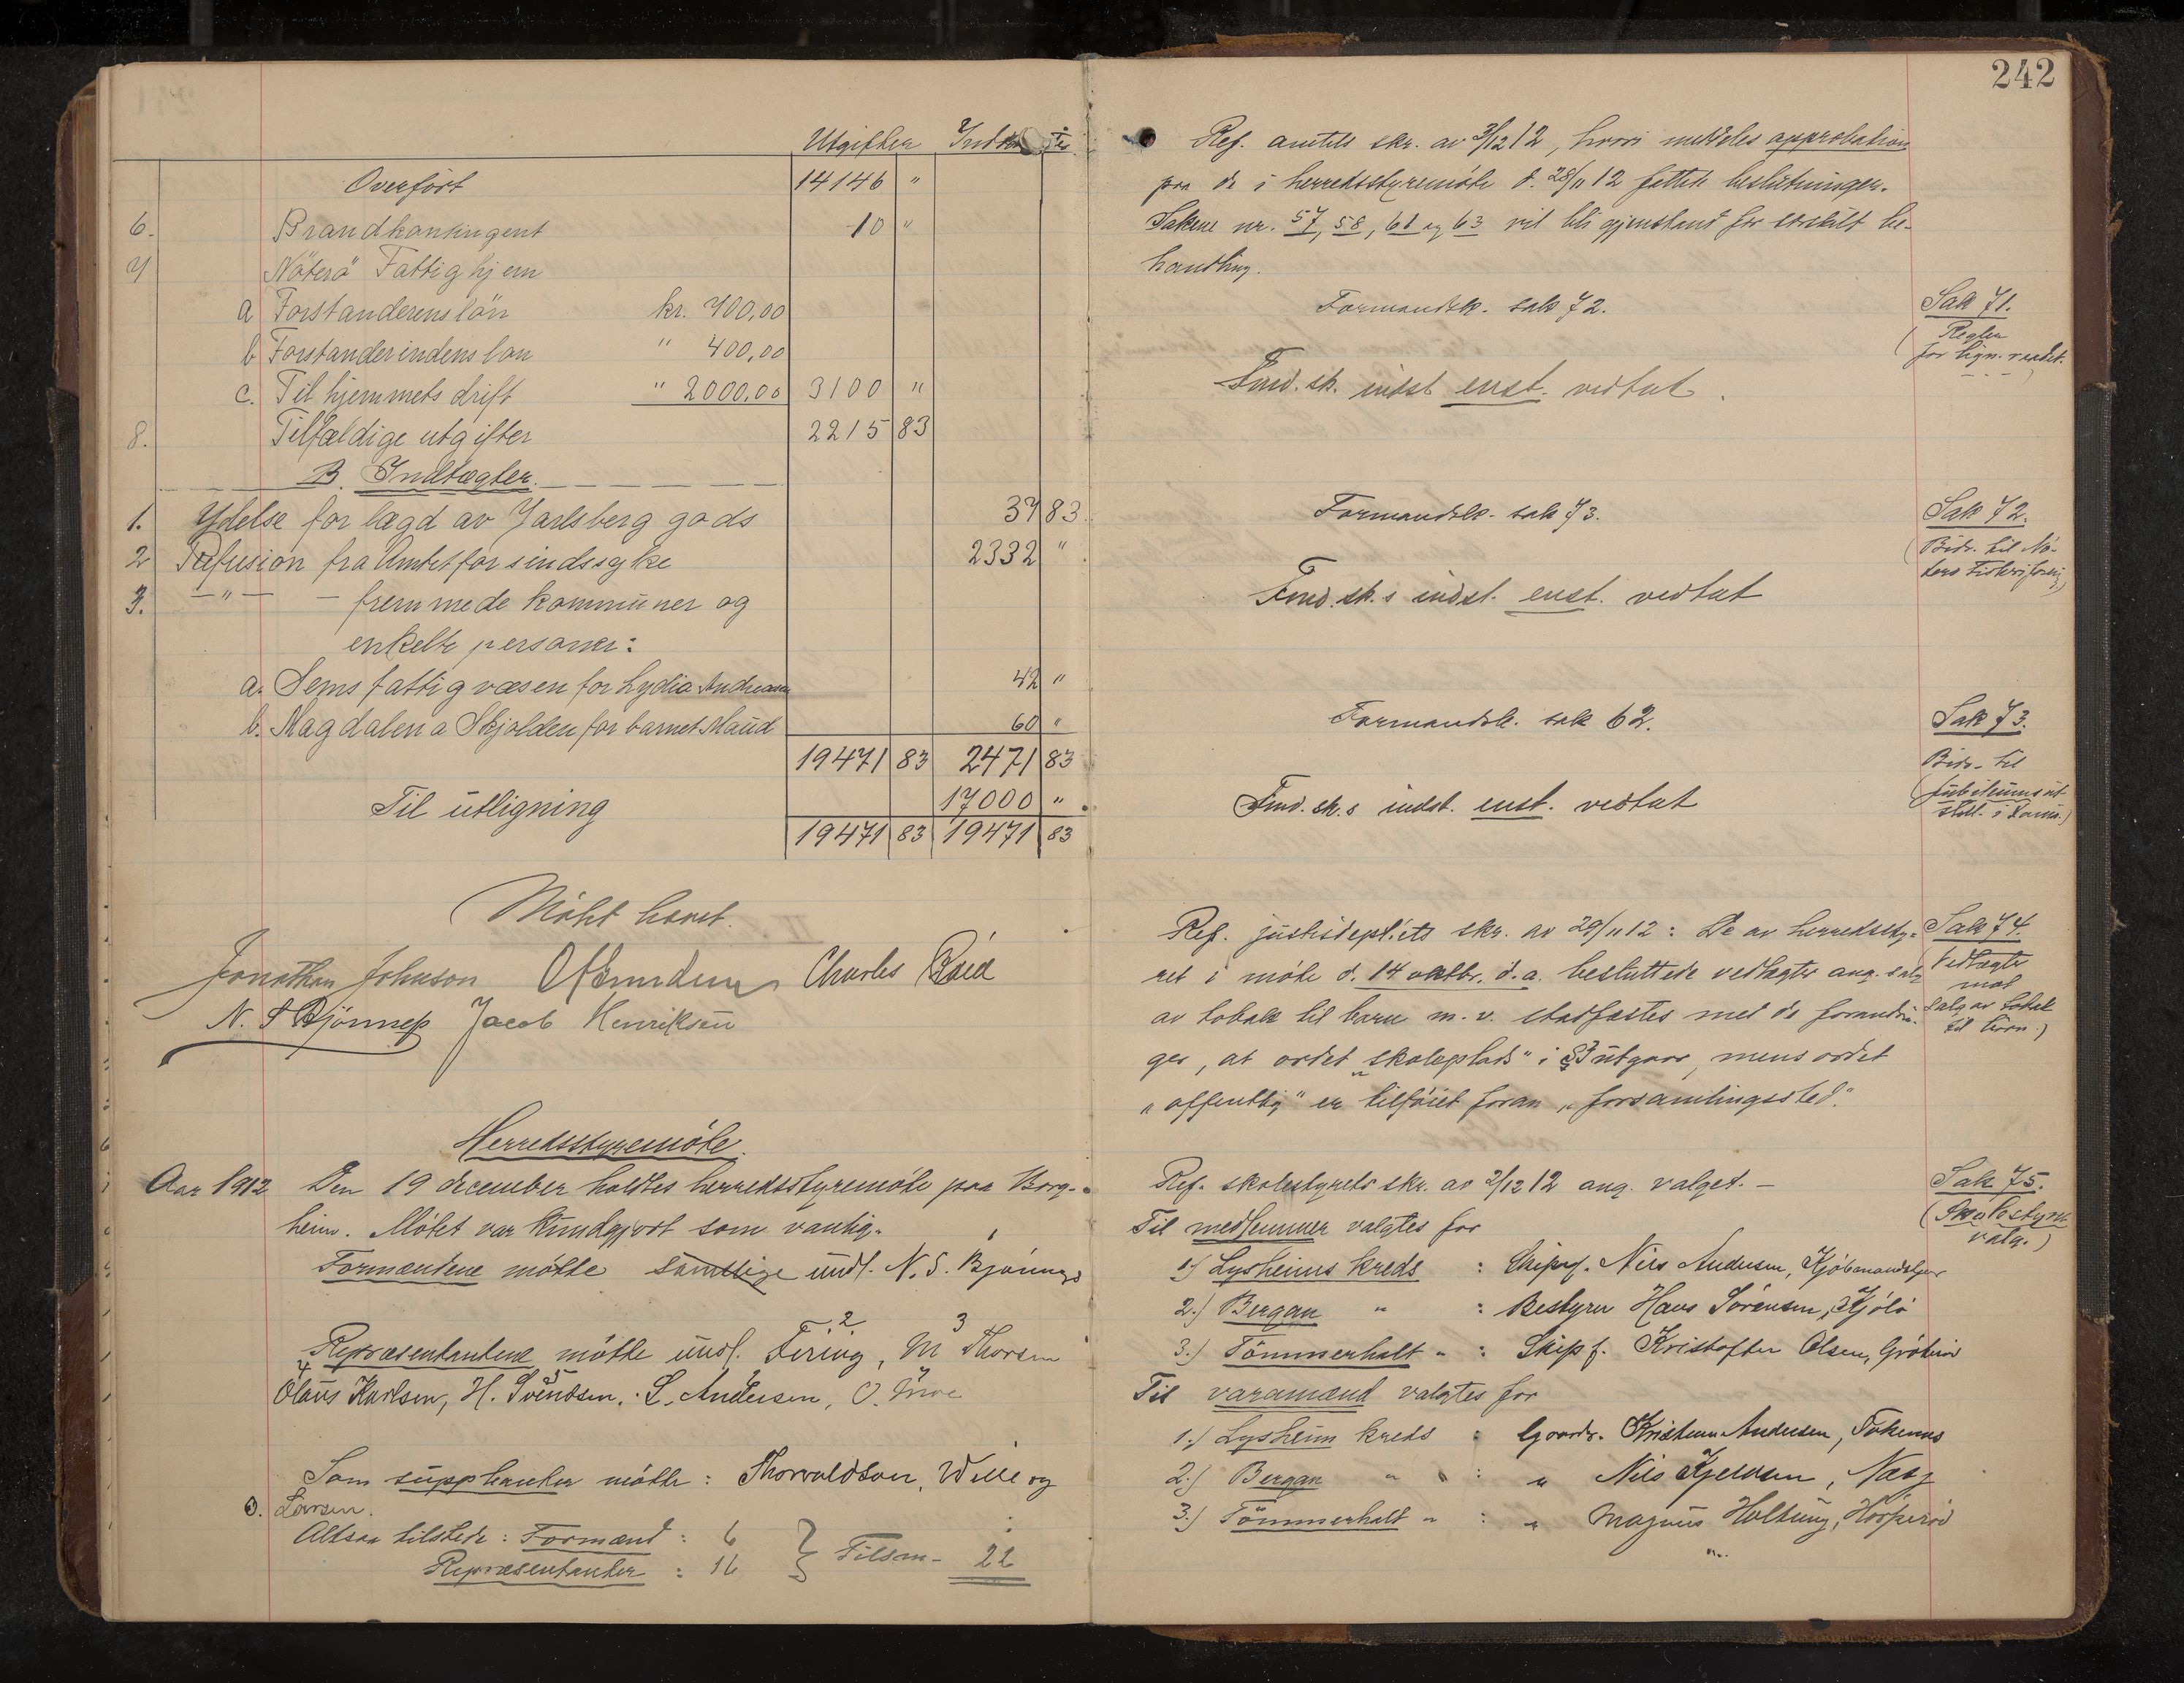 Utgifter Indtægter
Overført 14146 "
6. Brandkontingent 10 "
7 Nøterø Fattighjem
a Forstanderens løn kr. 700,00
b Forstanderindens løn " 400,00
c. Til hjemmets drift " 2000,00 3100 "
8. Tilfældige utgifter 2215 83
B. Indtægter.
1. Ydelse for lægd av Jarlsberg gods 37 83
2 Refusion fra Amtet for sindssyke 2332 "
3. — " — — fremmede kommuner og
enkelte personer:
a. Sems fattigvæsen for Lydia Andreasen 42 "
b. Magdalena Skjolden for barnet Maud 60 "
19471 83 2471 83
Til utligning 17000 "
19471 83 19471 83
Møtet hævet.
Jonathan Johnson Charles Røed
N. S Bjønnes Jacob Henriksen
Herredsstyremøte.
Aar 1912 Den 19 december holdtes herredsstyremøte paa Borg-
heim. Møtet var kundgjort som vanlig.
Formændene møtte samtlige undt. N. S. Bjønnes
2 3
Repræsentantene møtte undt. Firing, M Thorsen
4 5
Olaus Karlsen, H. Svendsen, L. Andersen, O. Moe
Som suppleanter møtte: Thorvaldsen, Wille og
O. Larsen.
Altsaa tilstede: Formænd: 6
Repræsentanter: 16 } Tilsm- 22
242
Ref. amtets skr. av 3/12 12, hvori meddeles approbation
paa de i herredsstyremøte d. 28/11 12 fattede beslutninger.
Sakene nr. 57, 58, 61 og 63 vil bli gjenstand for særskilt be-
handling.
Formandsk. sak 72.
Sak 71.
(Regler
for lign. reduk.)
Fmd. sk. indst enst. vedtat.
Formandsk. sak 73.
Sak 72.
(Bidr. til Nø-
terø Fiskeriforenig)
Fmd. sk.s indst. enst. vedtat
Formandsk. sak 62.
Sak 73.
Bidr. til
(jubilæumsut-
still. i Kra.)
Fmd. sk.s indst. enst. vedtat
Ref. justisdept.ets skr. av 29/11 12: De av herredssty-
Sak 74.
ret i møte d. 14 oktbr. d.a. besluttede vedtægter ang. salg
(Vedtægter
mot
av tobak til barn m. v. stadfæstes med de forandrin-
salg av tobak
til barn.)
ger, at ordet "skoleplads" i § 3 utgaar, mens ordet
"offentlig" er tilføiet foran "forsamlingssted".
Ref. skolestyrets skr. av 2/12 12 ang. valget. —
Sak 75.
(Skolestyre-
valg.)
Til medlemmer valgtes for
1.) Lysheims kreds : Skipsf. Nils Andersen, Kjøbmandskjær
2.) Bergan " : Bestyrer Hans Sørensen, Kjøle
3.) Tømmerholt " : Skipsf. Kristoffer Olsen, Grøterød
Til varamænd valgtes for
1.) Lysheim kreds : Gaardbr. Kristian Andersen, Tokenes
2.) Bergan " : " Nils Kjeldsen, Næs
3.) Tømmerholt " : " Magnus Holtung, Hårperød